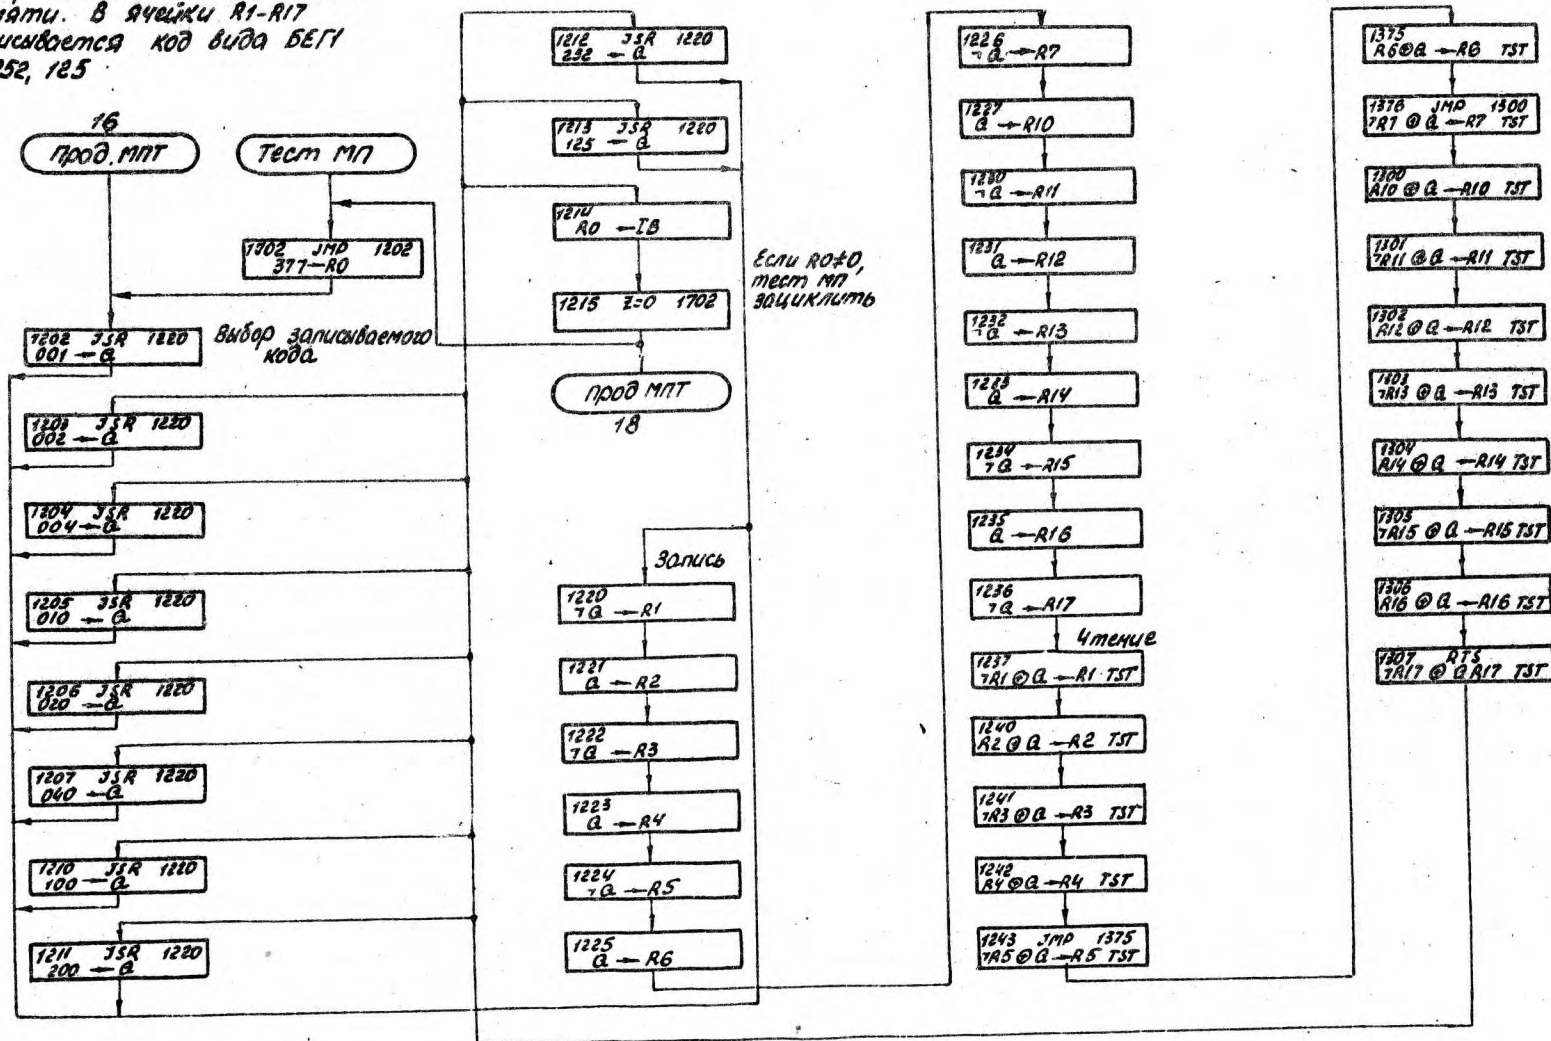 В ячейки R1-R17
код вида БЕГ1
252, 125
16
Прод. МПТ
Тест МП
1702 JMP 1202
377→R0
1202 JSR 1220
001→Q
Выбор записываемого
кода
1203 JSR 1220
002→Q
1204 JSR 1220
004→Q
1205 JSR 1220
010→Q
1206 JSR 1220
020→Q
1207 JSR 1220
040→Q
1210 JSR 1220
100→Q
1211 JSR 1220
200→Q
1212 JSR 1220
252→Q
1213 JSR 1220
125→Q
1214
R0→IB
1215 Z=0 1702
Если R0≠0,
тест МП
зациклить
Прод МПТ
18
Запись
1220
¬Q→R1
1221
Q→R2
1222
¬Q→R3
1223
Q→R4
1224
¬Q→R5
1225
Q→R6
1226
¬Q→R7
1227
Q→R10
1230
¬Q→R11
1231
Q→R12
1232
¬Q→R13
1233
Q→R14
1234
¬Q→R15
1235
Q→R16
1236
¬Q→R17
Чтение
1237
¬R1⊕Q→R1 TST
1240
R2⊕Q→R2 TST
1241
¬R3⊕Q→R3 TST
1242
R4⊕Q→R4 TST
1243 JMP 1375
¬R5⊕Q→R5 TST
1375
R6⊕Q→R6 TST
1376 JMP 1300
¬R7⊕Q→R7 TST
1300
R10⊕Q→R10 TST
1301
¬R11⊕Q→R11 TST
1302
R12⊕Q→R12 TST
1303
¬R13⊕Q→R13 TST
1304
R14⊕Q→R14 TST
1305
¬R15⊕Q→R15 TST
1306
R16⊕Q→R16 TST
1307 RTS
¬R17⊕Q R17 TST